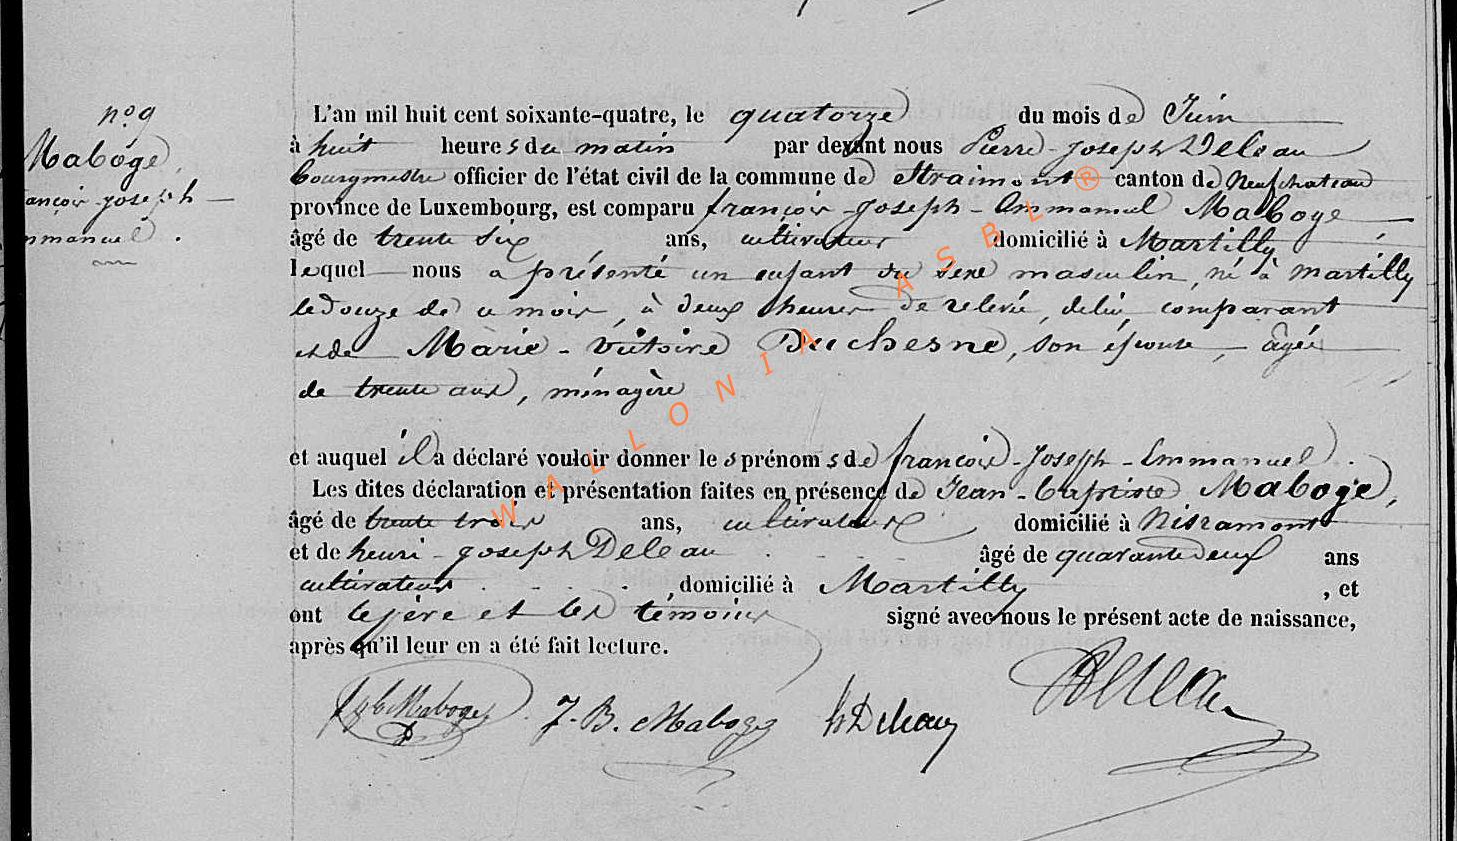 n° 9
Maboge,
ançois-Joseph
mmanuel.
L'an mil huit cent soixante-quatre, le quatorze du mois de Juin
à huit heures du matin par devant nous Pierre-Joseph Deleau
bourgmestre officier de l'état civil de la commune de Straimont canton de Neufchateau
province de Luxembourg, est comparu françois-Joseph-Emmanuel Maboge
âgé de trente six ans, cultivateur domicilié à Martilly
lequel nous a présenté un enfant du sexe masculin, né à Martilly
le douze de ce mois, à deux heures de relevée, de lui, comparant
et de Marie-Victoire Duchesne, son épouse, âgée
de trente ans, ménagère
et auquel il a déclaré vouloir donner les prénoms de françois-Joseph-Emmanuel.
Les dites déclaration et présentation faites en présence de Jean-Baptiste Maboge,
âgé de trente trois ans, cultivateur domicilié à Nisramont
et de henri-Joseph Deleau âgé de quarante deux ans
cultivateur domicilié à Martilly, et
ont le père et les témoins signé avec nous le présent acte de naissance,
après qu'il leur en a été fait lecture.
Maboge J. B. Maboge h Deleau Deleau
WALLONIA ASBL ®